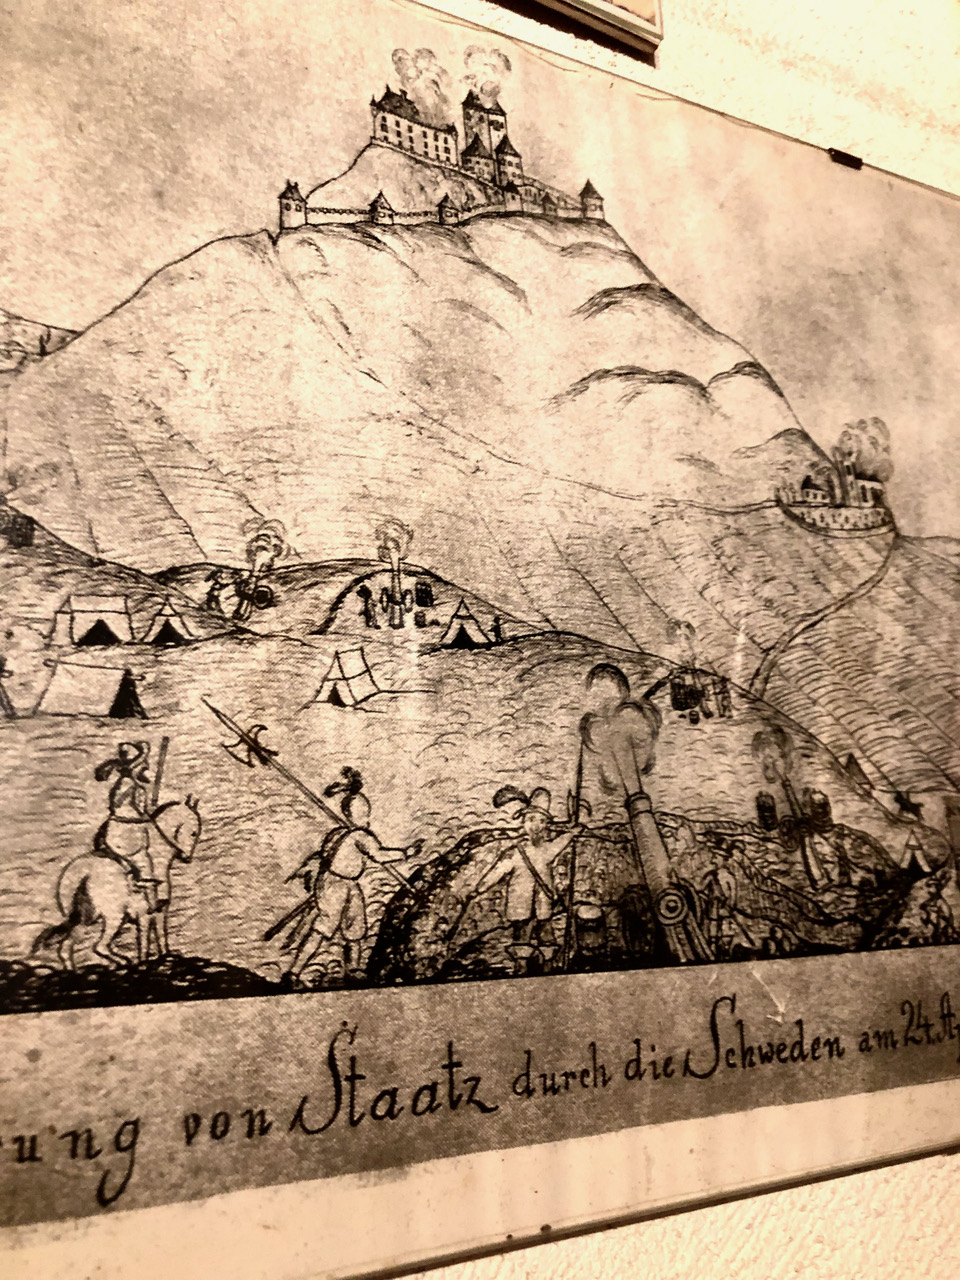 ung von Staatz durch die Schweden am 24. Ap